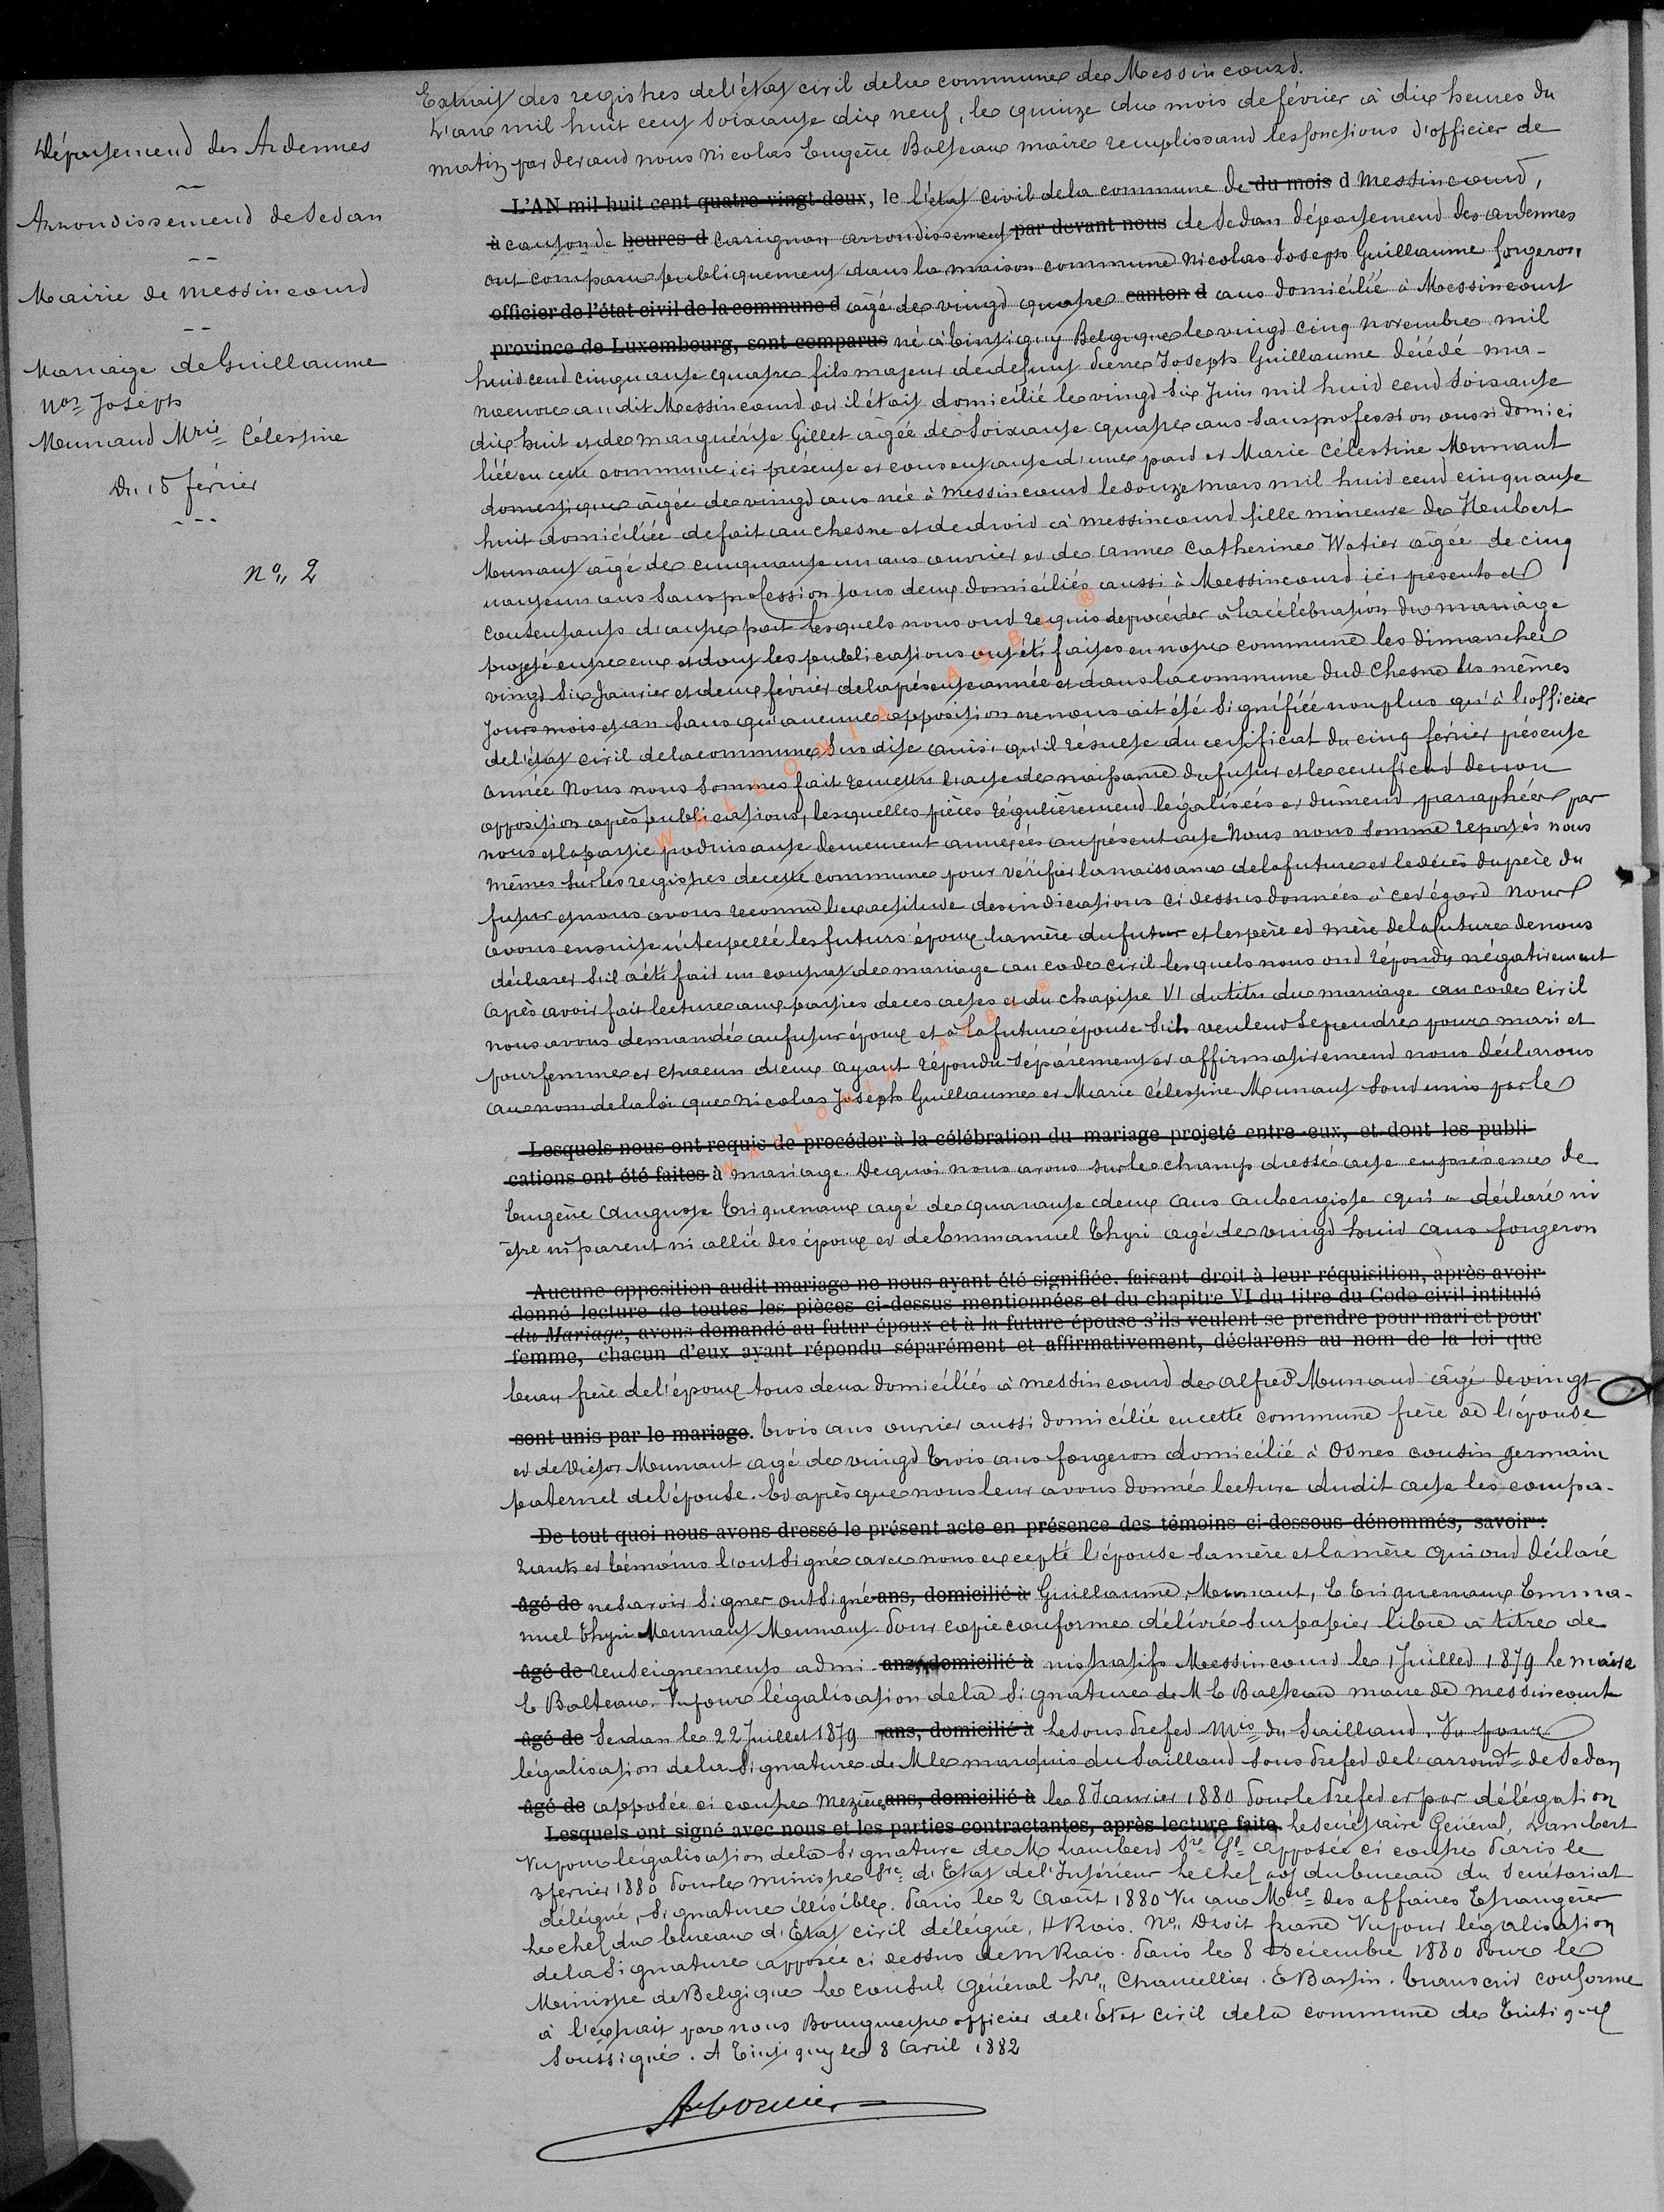 Extrait des registres de l'état civil de la commune de Messincourt.
L'an mil huit cent soixante dix neuf, le quinze du mois de février à dix heures du
Département des Ardennes
matin par devant nous Nicolas Eugène Balteaux maire remplissant les fonctions d'officier de
L'AN mil huit cent quatre-vingt-deux, le l'état civil de la commune de du mois d Messincourt,
Arrondissement de Sedan
à canton de heures d Carignan arrondissement par devant nous de Sedan département des Ardennes
ont comparu publiquement dans la maison commune Nicolas Joseph Guillaume forgeron
Mairie de Messincourt
officier de l'état civil de la commune d âgé de vingt quatre canton d ans domicilié à Messincourt
province de Luxembourg, sont comparus né à Tintigny Belgique le vingt cinq novembre mil
Mariage de Guillaume
Nas Joseph
Meunaud Mrie Célestine
Du 15 février
N° 2
huit cent cinquante quatre fils majeur de defunt Pierre Joseph Guillaume décédé ma-
noeuvre audit Messincourt où il était domicilié le vingt six Juin mil huit cent soixante
dix huit et de Marguérite Gillet agée de soixante quatre ans sans profession aussi domici
liée en cette commune ici présente et consentante d'une part et Marie Célestine Meunaut
domestique âgée de vingt ans née à Messincourt le douze mars mil huit cent cinquante
huit domiciliée de fait au Chesne et de droit à Messincourt fille mineure de Heubert
Meunaut âgé de cinquante un ans ouvrier et de Anne Catherine Watier âgée de cinq
uante un ans sans profession tous deux domiciliés aussi à Messincourt ici présents et
consentants d'autre part lesquels nous ont requis de procéder à la célébration du mariage
projeté entre eux et dont les publications ont été faites en notre commune les dimanches
vingt six Janvier et deux février de la présente année et dans la commune dud Chesne les mêmes
Jours mois et an sans qu'aucune opposition ne nous ait été signifiée non plus qu'à l'officier
de l'état civil de la commune susdite ainsi qu'il résulte du certificat du cinq février présente
année Nous nous sommes fait remettre l'acte de naissance du futur et le certificat de non
opposition après publications, lesquelles pièces régulièrement légalisées et dûment paraphées par
nous et la partie produisante demeurent annexées au présent acte Nous nous somme reportés nous
mêmes sur les registres de cette commune pour vérifier la naissance de la future et le décès du père du
futur et nous avons reconnu l'exactitude des indications ci dessus données à cet égard Nous
avons ensuite interpellé les futurs époux la mère du futur et les père et mère de la future de nous
déclarer s'il a été fait un contrat de mariage au code civil lesquels nous ont répondu négativement
après avoir fait lecture aux parties de ces actes et du chapitre VI du titre du mariage au code Civil
nous avons demandé au futur époux et à la future épouse s'ils veulent se prendre pour mari et
pour femme et chacun d'eux ayant répondu séparément et affirmativement nous déclarons
au nom de la loi que Nicolas Joseph Guillaume et Marie Célestine Meunaut sont unis par le
Lesquels nous ont requis de procéder à la célébration du mariage projeté entre eux, et dont les publi-
cations ont été faites à mariage. De quoi nous avons sur le champ dressé acte en présence de
Eugène Auguste Triquenaux agé de quarante deux ans aubergiste qui a déclaré ni
être ni parent ni allié des époux et de Emmanuel Thyri agé de vingt huit ans forgeron
Aucune opposition audit mariage ne nous ayant été signifiée, faisant droit à leur réquisition, après avoir
donné lecture de toutes les pièces ci-dessus mentionnées et du chapitre VI du titre du Code civil intitulé
du Mariage, avons demandé au futur époux et à la future épouse s'ils veulent se prendre pour mari et pour
femme, chacun d'eux ayant répondu séparément et affirmativement, déclarons au nom de la loi que
beau frère de l'époux tous deux domiciliés à Messincourt de Alfred Meunaud âgé de vingt
sont unis par le mariage. trois ans ouvrier aussi domicilié en cette commune frère de l'épouse
et de Victor Meunaut agé de vingt trois ans forgeron domicilié à Osnes cousin germain
paternel de l'épouse. Et après que nous leur avons donné lecture dudit acte les compa-
De tout quoi nous avons dressé le présent acte en présence des témoins ci-dessous dénommés, savoir :
rants et témoins l'ont signé avec nous excepté l'épouse sa mère et la mère qui ont déclaré
âgé de ne savoir signer ont signé ans, domicilié à Guillaume, Meunaut, E Triquenaux Emma-
nuel Thyri Meunaut Meunaut. Pour copie conforme délivré sur papier libre à titre de
âgé de renseignements admi- ans, domicilié à nistratifs Messincourt le 1 Juillet 1879 Le maire
E Balteaux. Vu pour légalisation de la signature de M E Balteau maire de Messincourt
âgé de Sedan le 22 Juillet 1879 ans, domicilié à Le Sous Prefet Mis du Saillaud. Vu pour
légalisation de la signature de M le marquis du Saillaud sous Prefet de l'arrondt de Sedan
âgé de apposée ci contre Mezières ans, domicilié à le 8 Janvier 1880 Pour le Prefet et par délégation
Lesquels ont signé avec nous et les parties contractantes, après lecture faite. Le Secrétaire Général, Lambert
Vu pour légalisation de la signature de M Lambert Sre Gl Apposée ci contre Paris le
3 fevrier 1880 Pour le Ministre Sre d'Etat de l'Intérieur Le chef adj du bureau du Secrétariat
délégué, signature illisible. Paris le 2 Août 1880 Vu au Mre des affaires Etrangères
Le chef du bureau d'Etat civil délégué, H Rois. N° Droit franc Vu pour légalisation
de la signature apposée ci dessus de M Rois. Paris le 8 Décembre 1880 Pour le
Ministre de Belgique Le Consul Général hre Chancellier. E Bastin. Transcrit conforme
à l'extrait par nous Bourgmestre officier de l'Etat Civil de la commune de Tintigny
soussigné. A Tintigny le 8 Avril 1882
WALLONIA ASBL ®
WALLONIA ASBL ®